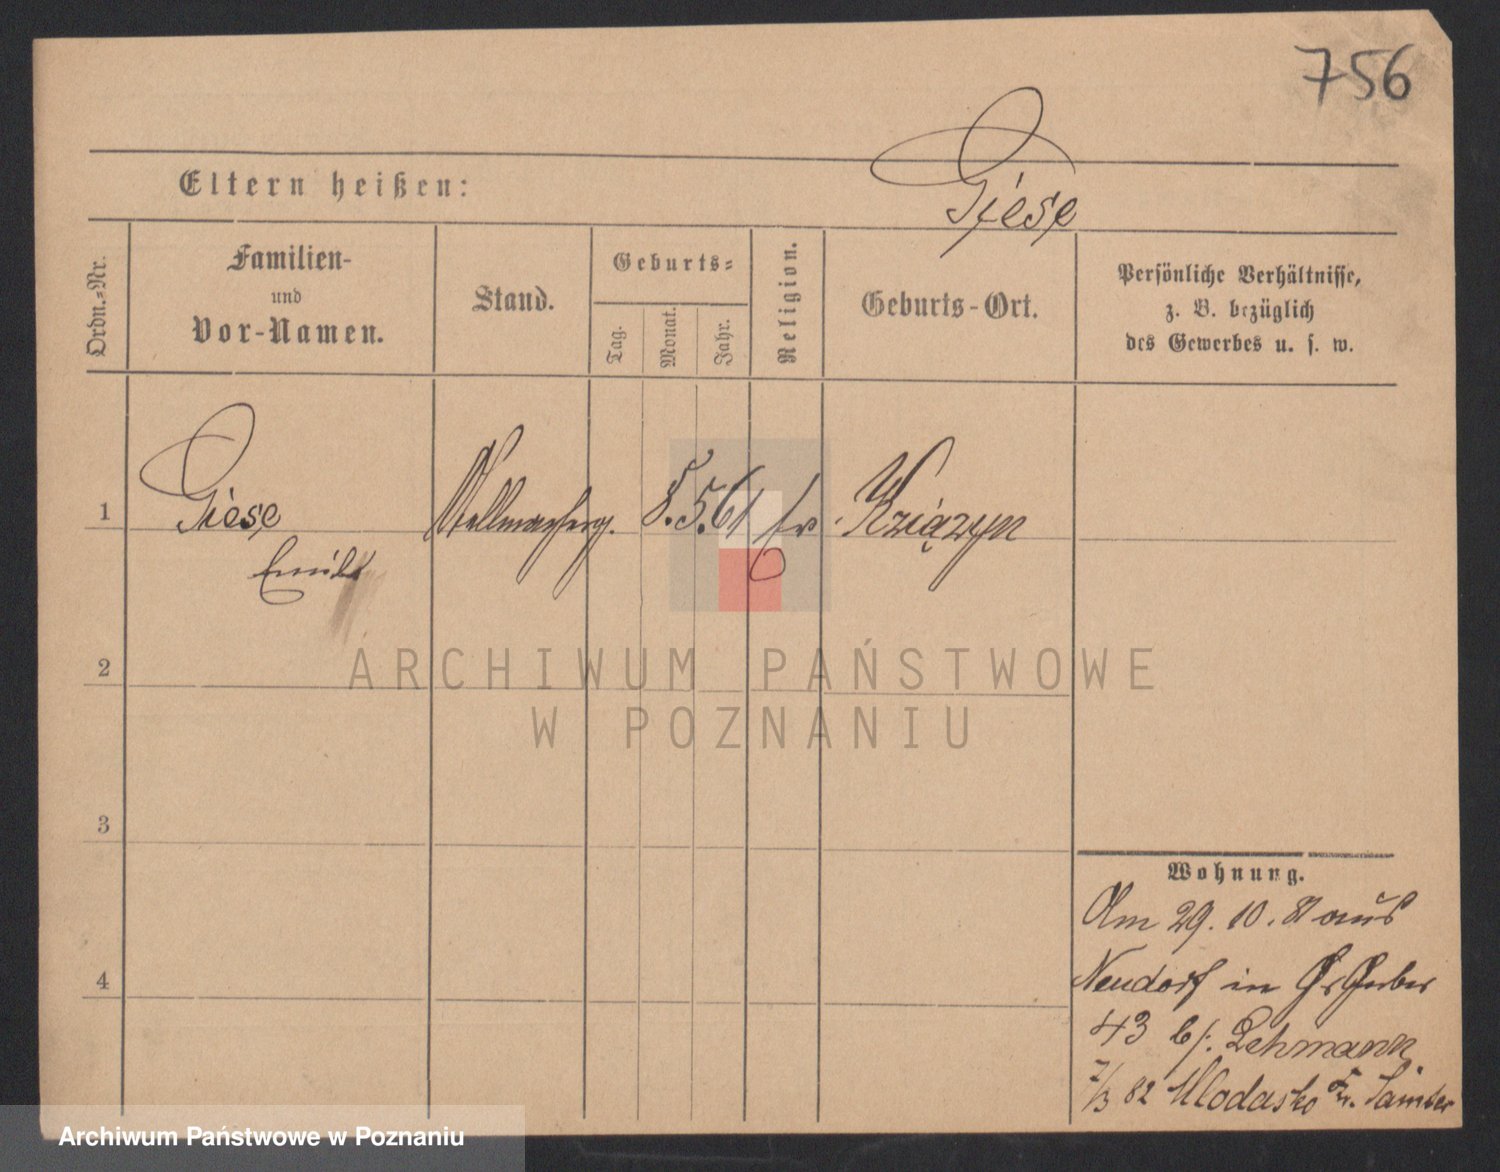 756
Giese
Eltern heißen:
Ordn.=Nr.
Familien-
und
Vor-Namen.
Stand.
Geburts=
Tag.
Monat.
Jahr.
Religion.
Geburts-Ort.
Persönliche Verhältnisse,
z. B. bezüglich
des Gewerbes u. s. w.
1
Giese
Emil
8. 5. 61
Książyn
2
3
4
ARCHIWUM PAŃSTWOWE
W POZNANIU
Wohnung.
Am 29. 10. 81 aus
Neudorf in Gr Gerber
43 b/. Lehmann
7/3 82 Wlodasko Kr. Samter
Archiwum Państwowe w Poznaniu